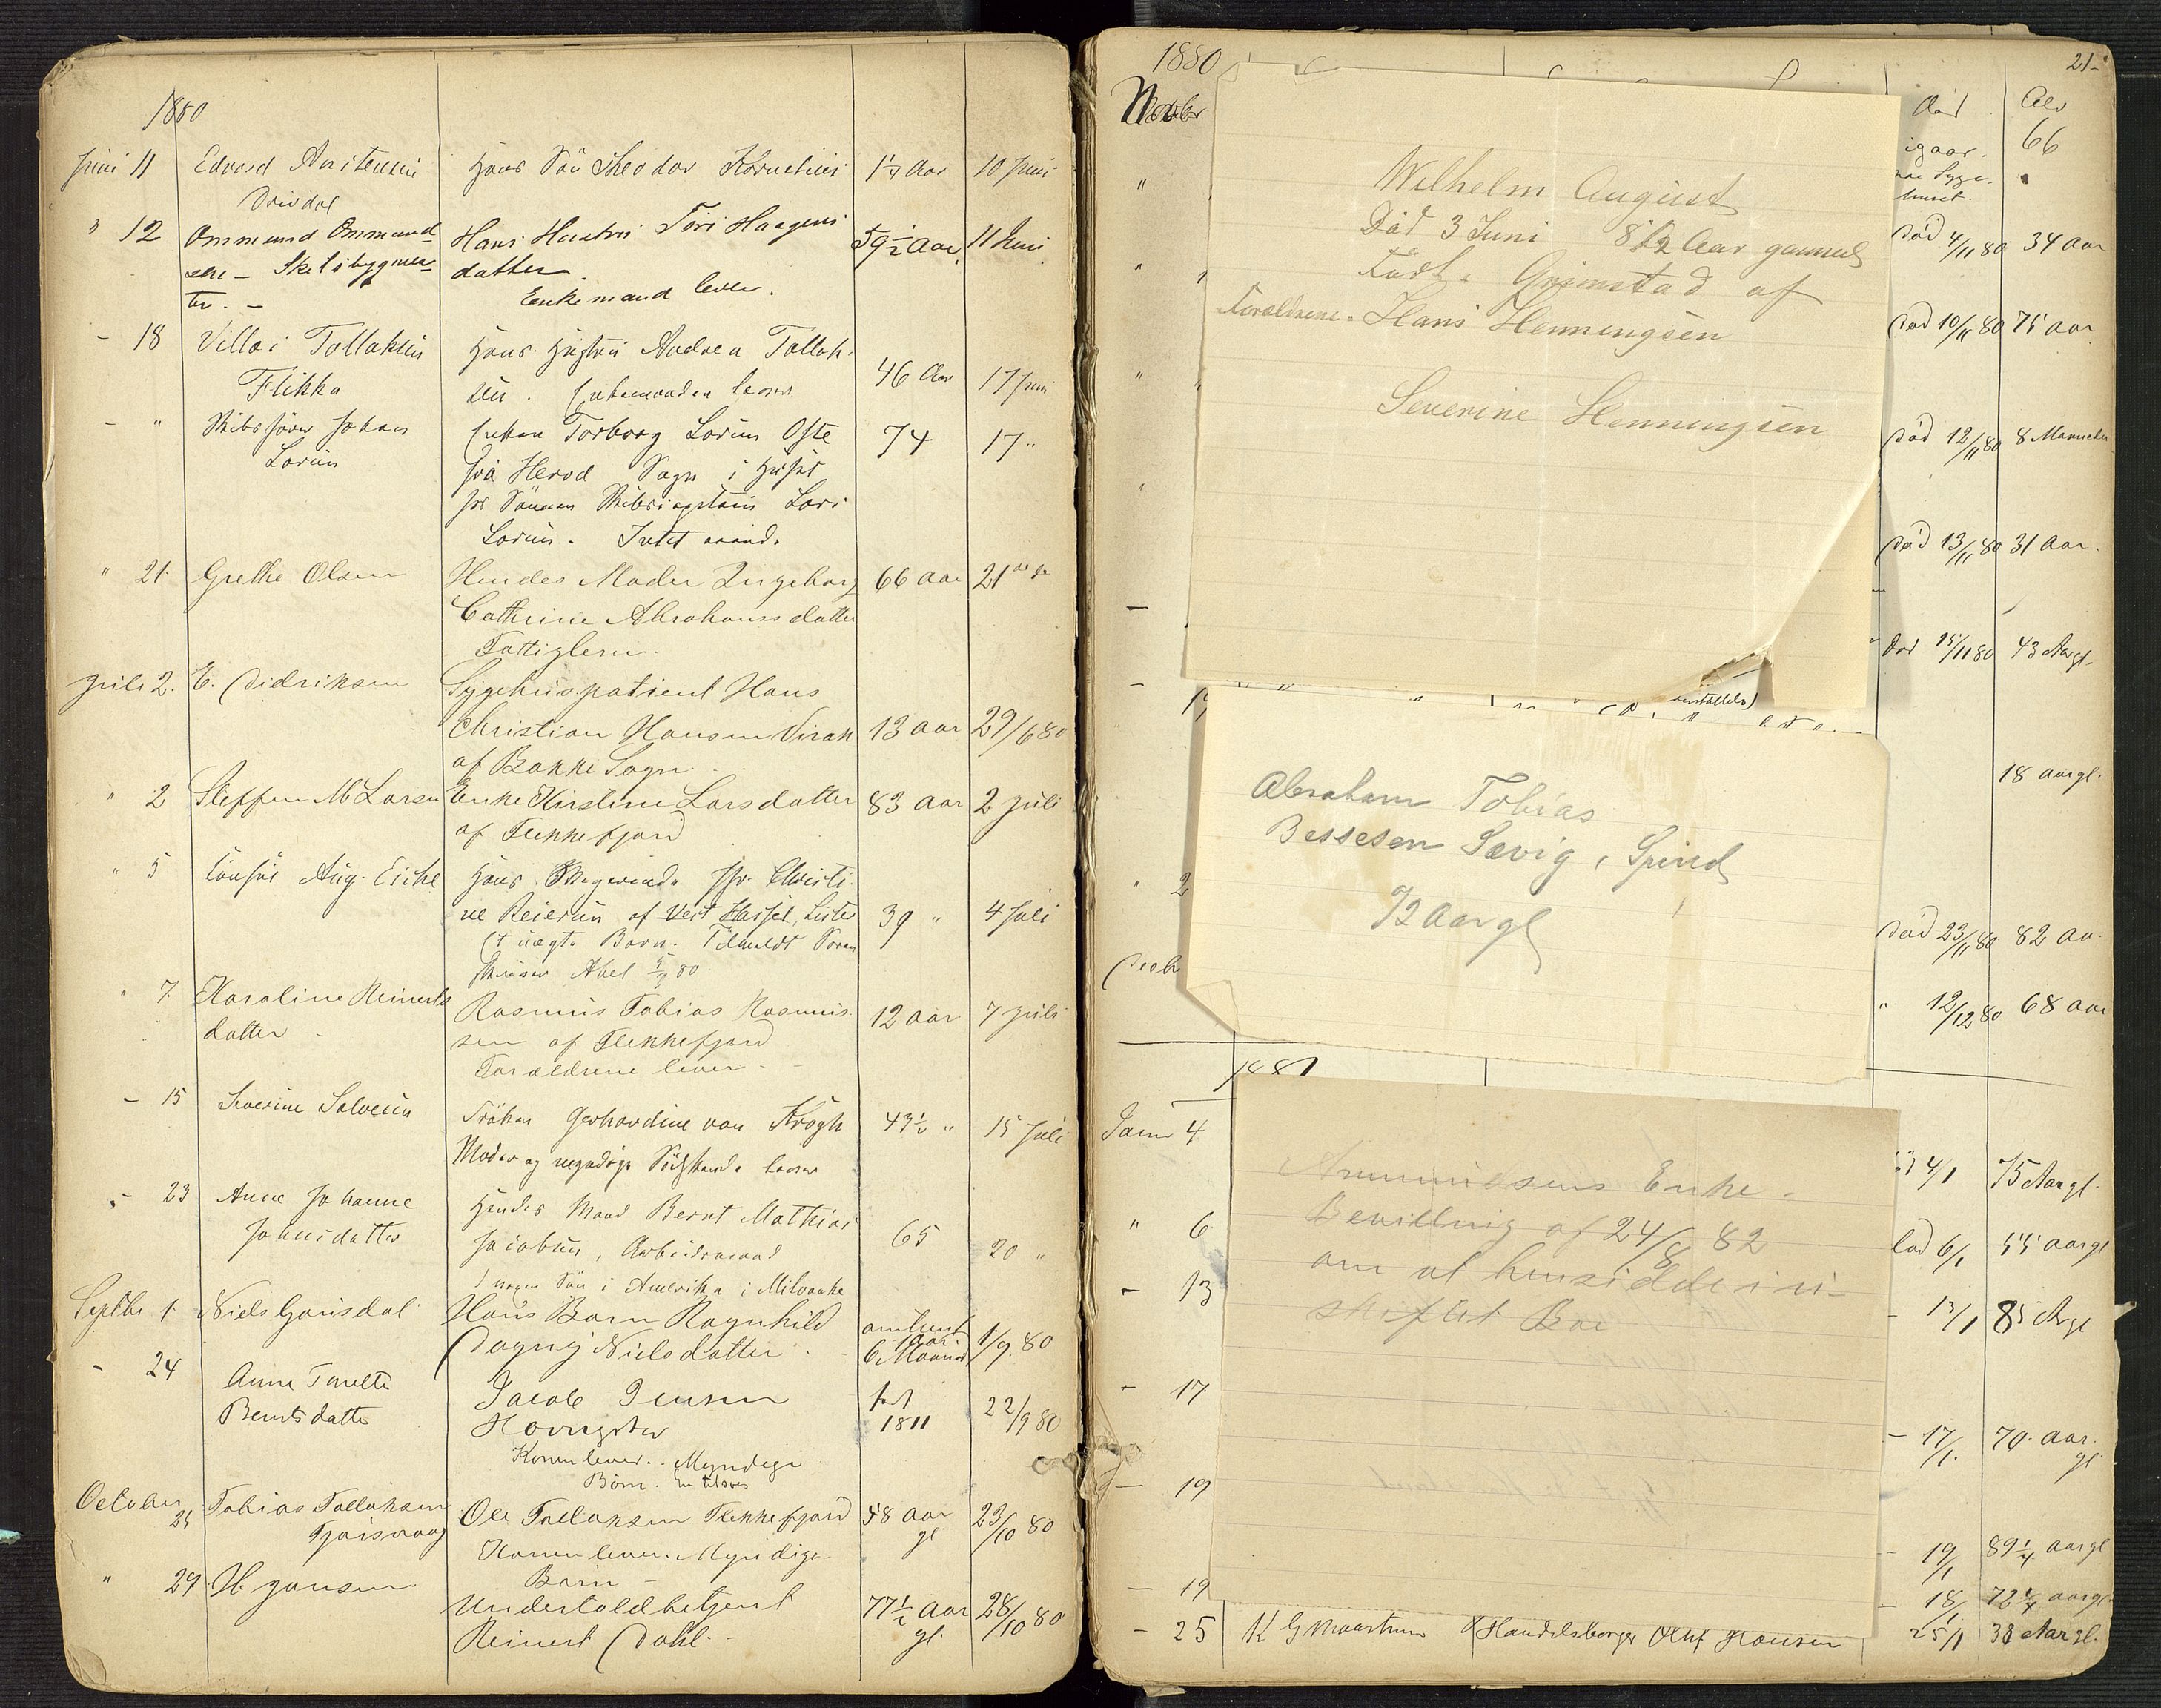 1880
Juni 11 Edvard
Drivdal
Hans Søn Theodor Kornelius
1½ Aar 10 Juni
" 12 Ommund Ommund
sen - Skibsbygmes
ter. -
Hans Hustru Tori Haagens
datter.
Enkemand lever.
59½ Aar. 11 Juni.
- 18 Villas Tollaksen
Flikka
Hans Hustru Andrea Tollak-
sen. Enkemanden lever
46 Aar 17 Juni
- " Skibsfører Johan
Larsen
Enken Torborg Larsen Ofte
fra Herod Sogn i Huset
for Sønnen Skibscaptain Lars
Larsen. Intet
74 17 "
" 21. Grethe Olsen
Hendes Moder Ingeborg
Cathrine Abrahamsdatter
Fattiglem.
66 aar 21
Juli 2. E. Didriksen
Sygehuspatient Hans
Christian Hansen Virak
af Bakke Sogn.
13 aar 29/6 80
" 2 Steffen M Larsen
Enke Kirstine Larsdatter
af Flekkefjord
83 aar 2 Juli
" 5 Consul Aug. Eiche
Hans Christi
ne Reiersen af Vest Hassel, Lister
Børn. Tilmeldt Soren
skriver Abel 5/7 80
39 " 4 Juli
" 7. Karoline Reinerts
datter -
Rasmus Tobias Rasmus-
sen af Flekkefjord
Forældrene lever. -
12 aar 7 Juli
- 15 Severine Salvesen
Frøken Gerhardine von Krogh
Moder og myndige Sødskende lever
43½ " 15 Juli
- 23 Anne Johanne
Johnsdatter
Hendes Mand Bernt Mathias
Jacobsen, Arbeidsmand
1 Søn i Amerika i Milvauke
65 20 "
Septbr 1. Niels Gausdal
Hans Barn Ragnhild
Dagny Nielsdatter.
omtrent
1 Aar.
6 Maaned
1/9. 80
- 24 Anne Tonette
Berntsdatter
Jacob Jensen
Konen lever. - Myndige
Børn.
født
1811
22/9 80
October 25 Tobias Tollaksen
Ole Tollaksen Flekkefjord
Konen lever. Myndige
Børn -
58 aar
gl.
23/10 80
" 29. H. Jansen.
Undertoldbetjent
Reinert Dahl. -
77½ Aar
gl.
28/10 80
1880 21-
Novbr
Død Alder
igaar. 66
paa Syge-
huset.
død 4/11 80 34 aar
død 10/11 80 75 aar
død 12/11 80 8 Maaneder
død 13/11 80 31 Aar.
død 15/11 80 43 Aargl.
18 aargl.
død 23/11 80 82 Aar
" 12/12 80 68 aar
Wilhelm August
Död 3 Juni 8 1/2 Aar gammel
Födt. Grimstad af
Foraldrene. Hans Henningsen
Severine Henningsen
Abraham Tobias
Bessesen Sævig, Spind
72 aargl
" 2
Decbr
1881
Janr 4
4/1 75 Aargl.
" 6
død 6/1 55 aargl
- 13
- 13/1 85 Argl
- 17
- 17/1. 70. aar.
gl.
- 19
- 19/1 89¼ aargl
- 19
- 18/1 72¼ aargl.
Ammundsens Enke.
Bevilling af 24/8 82
om at hensidde i u-
skiftet Bo
- 25 K G Maastrum Handelsborger Oluf Hansen 25/1 38 Aargl.